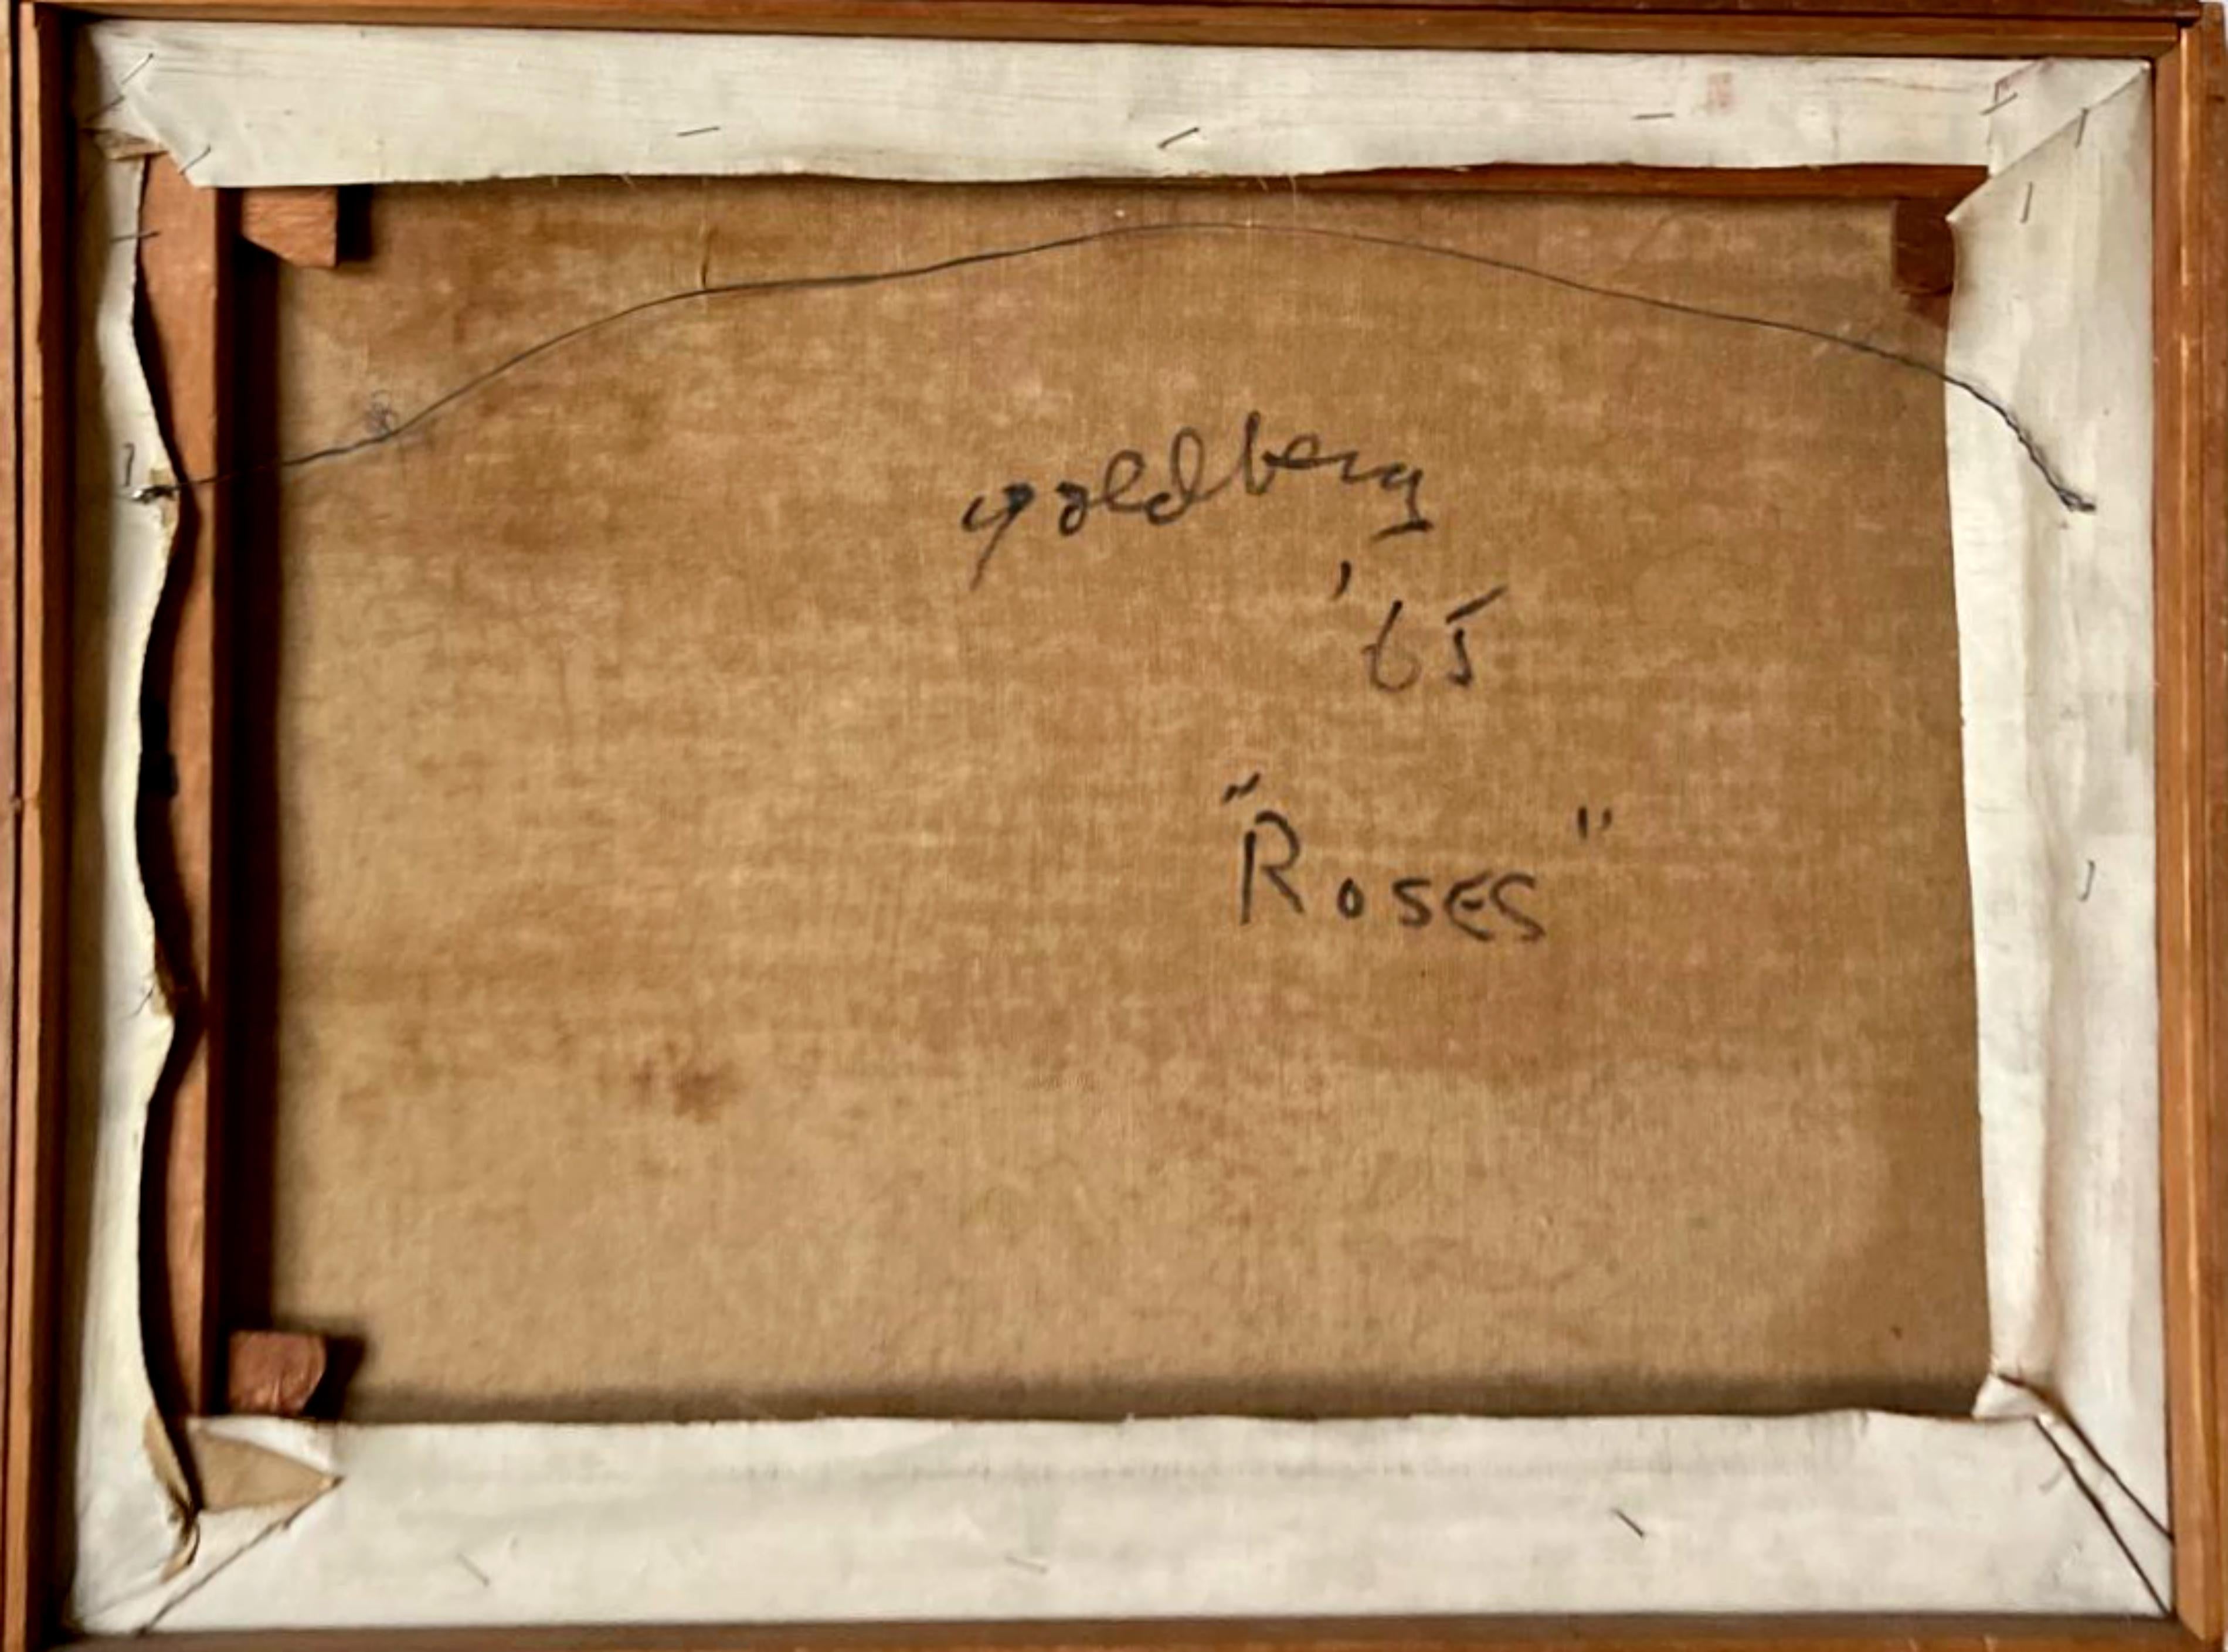 goldberg
'65
"Roses"